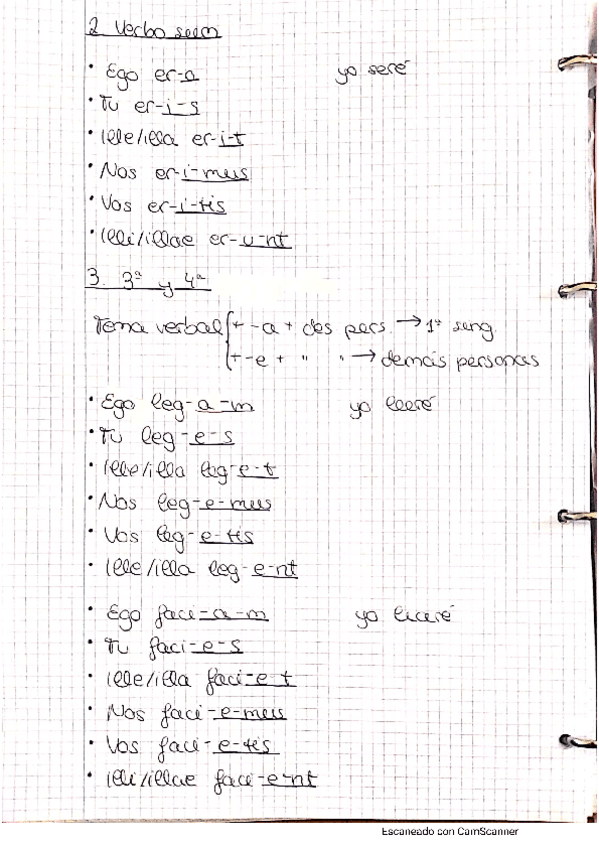 2 Verbo sum
• Ego er-a yo seré
• Tu er-i-s
• Ille/illa er-i-t
• Nos er-i-mus
• Vos er-i-tis
• Illi/illae er-u-nt
3. 3ª y 4ª
Tema verbal { + -a + des pers. → 1ª sing.
+ -e + " " → demais personas
• Ego leg-a-m yo leeré
• Tu leg-e-s
• Ille/illa leg-e-t
• Nos leg-e-mus
• Vos leg-e-tis
• Ille/illa leg-e-nt
• Ego faci-a-m yo
• Tu faci-e-s
• Ille/illa faci-e-t
• Nos faci-e-mus
• Vos faci-e-tis
• Illi/illae faci-e-nt
Escaneado con CamScanner